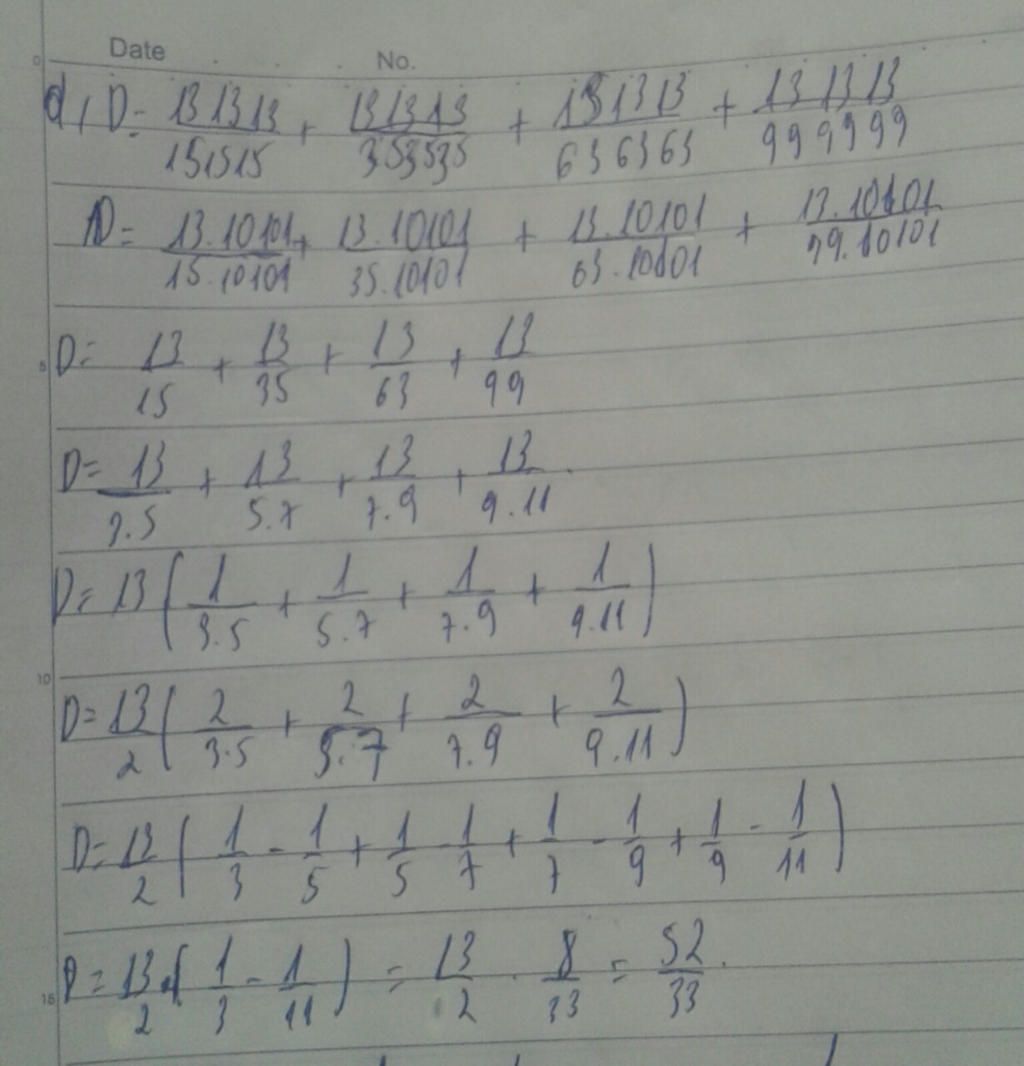 Date No.
d, D = 131313/151515 + 131313/353535 + 131313/636363 + 131313/999999
D = 13.10101/15.10101 + 13.10101/35.10101 + 13.10101/63.10101 + 13.10101/99.10101
5
D = 13/15 + 13/35 + 13/63 + 13/99
D = 13/3.5 + 13/5.7 + 13/7.9 + 13/9.11
D = 13 ( 1/3.5 + 1/5.7 + 1/7.9 + 1/9.11 )
10
D = 13/2 ( 2/3.5 + 2/5.7 + 2/7.9 + 2/9.11 )
D = 13/2 ( 1/3 - 1/5 + 1/5 - 1/7 + 1/7 - 1/9 + 1/9 - 1/11 )
15
D = 13/2 . ( 1/3 - 1/11 ) = 13/2 . 8/33 = 52/33.